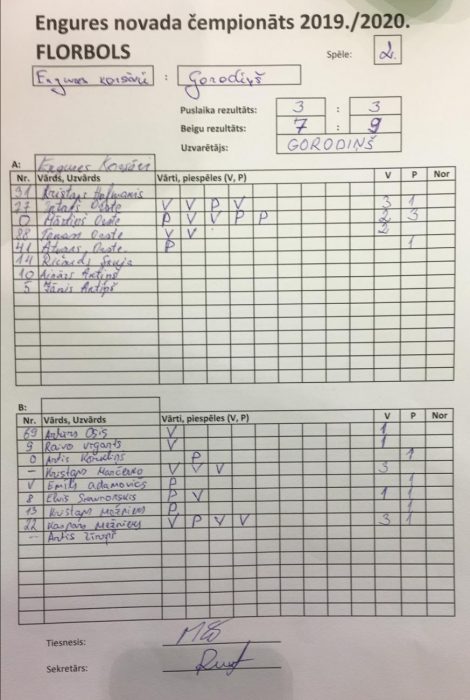 Engures novada čempionāts 2019./2020.
FLORBOLS Spēle: 2.
Engures korsāri : Gorodiņš
Puslaika rezultāts: 3 : 3
Beigu rezultāts: 7 : 9
Uzvarētājs: GORODIŅŠ
A: Engures Korsāri
Nr. Vārds, Uzvārds Vārti, piespēles (V, P) V P Nor
31 Kristaps
27 Intars Oste V V P V 3 1
0 Mārtiņš Oste P V V P P 2 3
88 Tomass Oste V V 2
41 Atvars Oste P 1
14 Ričards Skuja
10 Ainārs Antiņš
5 Jānis Antiņš
B:
Nr. Vārds, Uzvārds Vārti, piespēles (V, P) V P Nor
69 Antars Osis V 1
9 Raivo Urgants V 1
0 Artis P 1
– Kristaps Mančenko V V V 3
V Emīls Adamovics P 1
8 Elvis P V 1 1
13 Kristaps Mežnieks P 1
22 Kaspars Mežnieks V P V V 3 1
– Artis
Tiesnesis:
Sekretārs: